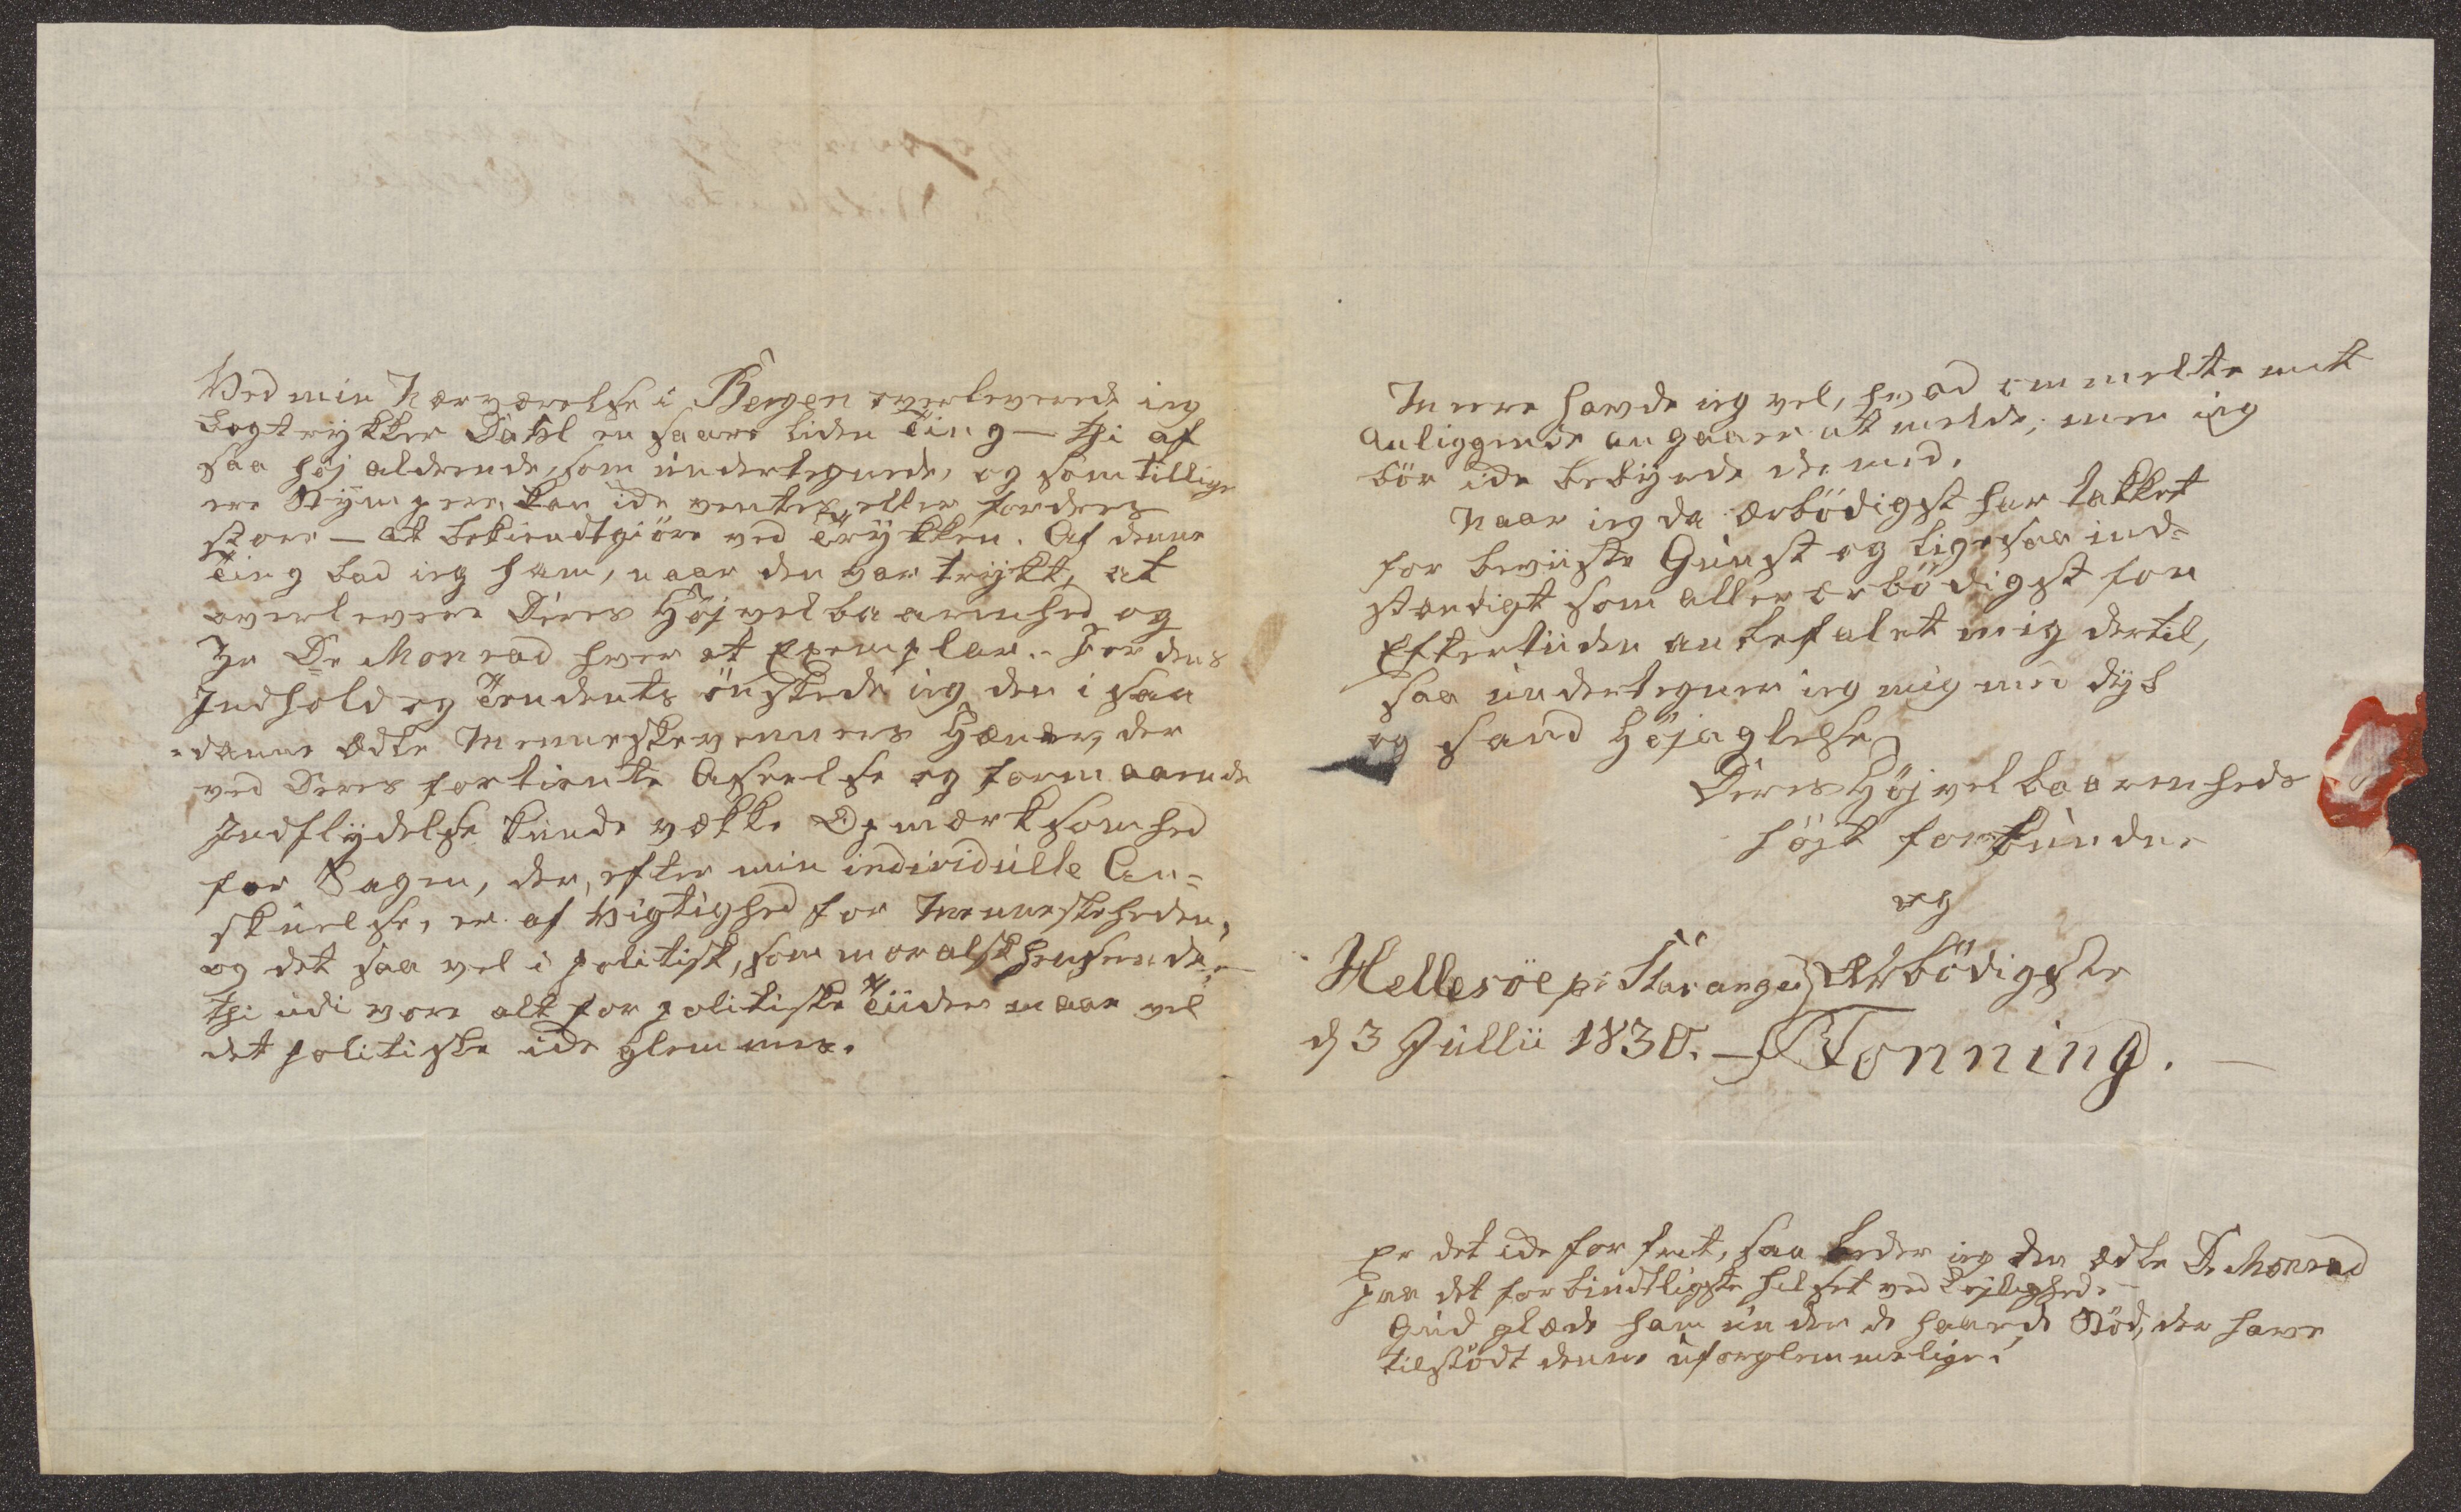 Ved min Nærværelse i Bergen overleverede ieg
Bogtrykker Dahl en saare liden Ting — thi af
saa høj aldrende, som undertegnede, og som tillige
ere Stympere, kan ide ventes, eller fordres
store — at bekiendtgiöre ved Trykken. Af denne
Ting bad ieg ham, naar den var trykt, at
overlevere Deres Højvelbaarenhed og
Hr Dr Monrad hver et Exemplar. For dens
Indhold og Tendents önskede ieg den i saa
danne ædle Menneskevenners Hænder, der
ved Deres fortiente Anseelse og formaaende
Indflydelse kunde vække Opmærksomhed
for Sagen, der, efter min individuelle An=
skuelse, er af Vigtighed for Menneskeheden,
og det saa vel i politisk, som moralsk Henseende,
thi udi vore alt for politiske Tiider maae vel
det politiske ide glemmes.
Meere havde ieg vel, hvad ommeldte mit
Anliggende angaaer at melde; men ieg
bör ide bebyrde dermed.
Naar ieg da ærbödigst har takket
for beviiste Gunst og ligesaa ind=
stændigt som allerærbödigst for
Eftertiiden anbefalet mig dertil,
saa undertegner ieg mig med dyb
og sand Höjagtelse
Deres Höjvelbaarenheds
höjt forbundne
og
Hellesöe pr Stavanger Ærbödigste
d 3 Jullii 1830. — Tonning. —
Er det ide for frit, saa beder ieg den ædle Dr Monrad
paa det forbindtligste hilset ved Lejlighed. —
Gud glæde ham under de haarde Stöd, der have
tilstödt denne uforglemmelige!